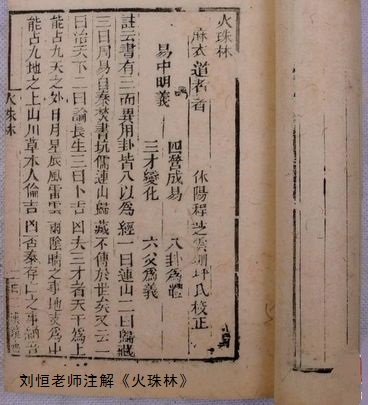 火珠林
麻衣道者著 休陽程芝雲澗坪氏校正
四營成易 八卦為體
易中明義
三才變化 六爻為義
註云書有三而異用卦皆八以為經一曰連山二曰歸藏
三曰周易自秦焚書坑儒連山歸藏不傳於世矣又云一
曰治天下二曰論長生三曰卜吉凶夫三才者天為上
能占九天之外日月星辰風雷雲雨陰晴之事地爻為中
能占九地之上山川草木人倫吉凶否泰存亡之事
火珠林
刘恒老师注解《火珠林》